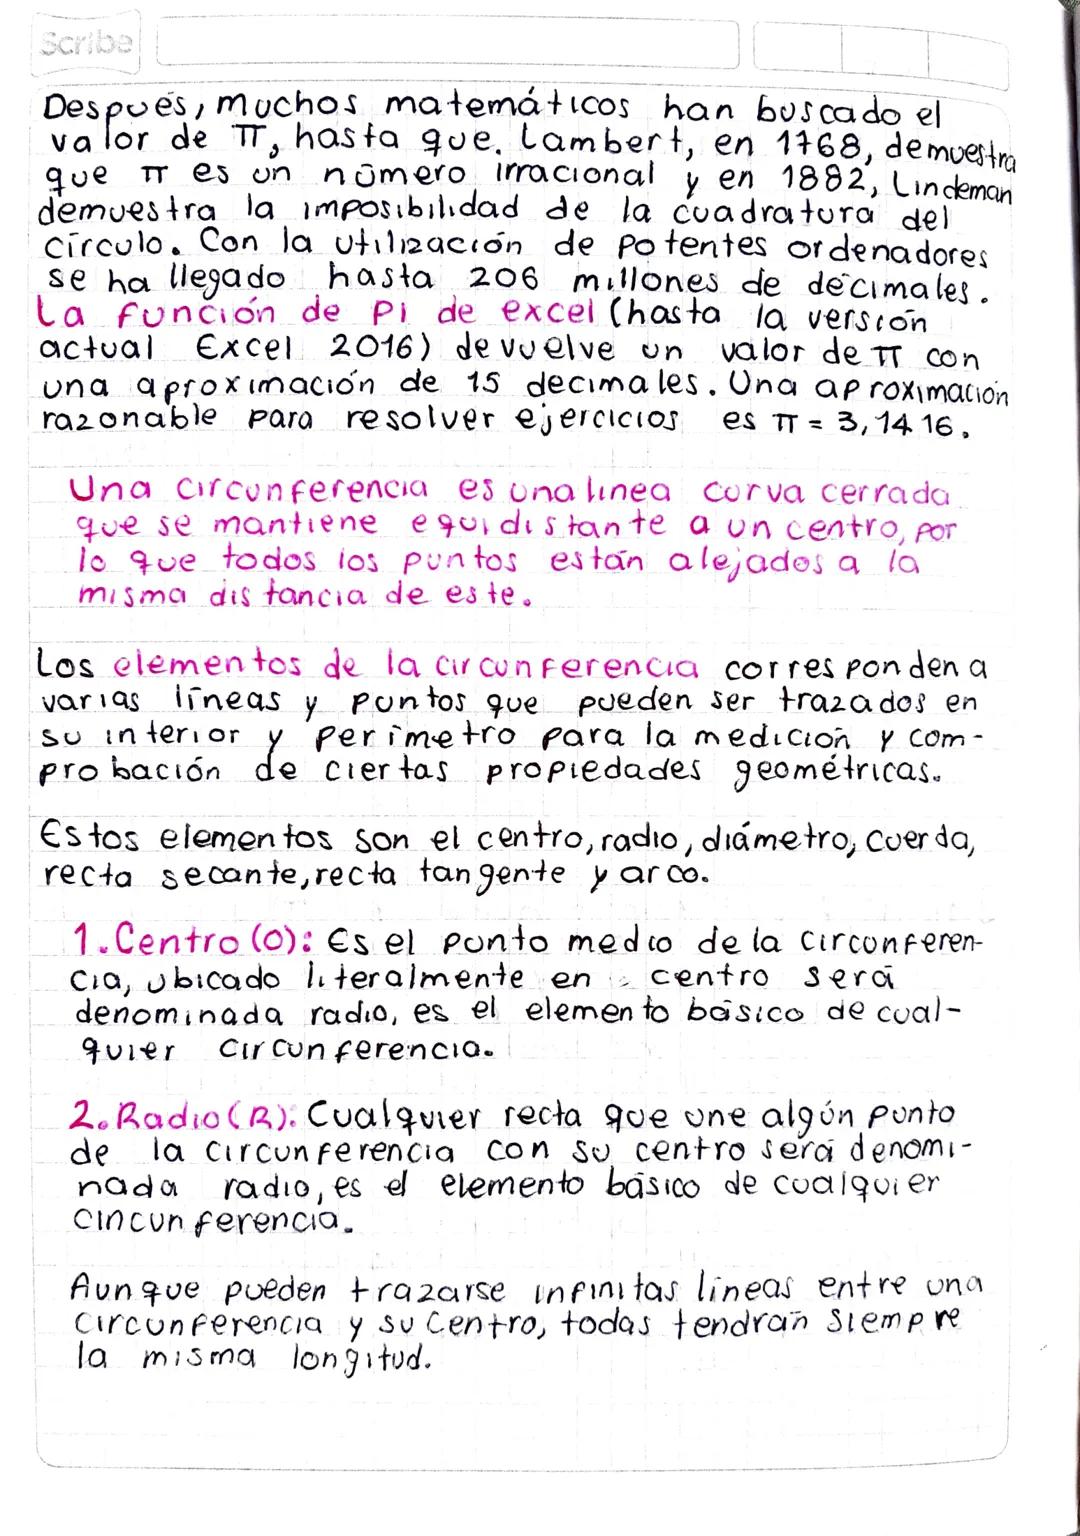 Scribe
Después, muchos matemáticos han buscado el
valor de π, hasta que. Lambert, en 1768, demuestra
que π es un número irracional y en 1882, Lindeman
demuestra la imposibilidad de la cuadratura del
círculo. Con la utilización de potentes ordenadores
se ha llegado hasta 206 millones de decimales.
La función de Pi de excel (hasta la versión
actual Excel 2016) devuelve un valor de π con
una aproximación de 15 decimales. Una aproximación
razonable para resolver ejercicios es π = 3,1416.
Una circunferencia es una linea curva cerrada
que se mantiene equidistante a un centro, por
lo que todos los puntos están alejados a la
misma distancia de este.
Los elementos de la circunferencia corresponden a
varias líneas y puntos que pueden ser trazados en
su interior y perímetro para la medición y com-
probación de ciertas propiedades geométricas.
Estos elementos son el centro, radio, diámetro, cuerda,
recta secante, recta tangente y arco.
1. Centro (O): Es el punto medio de la circunferen-
cia, ubicado literalmente en centro será
denominada radio, es el elemento básico de cual-
quier circunferencia.
2. Radio (R): Cualquier recta que une algún punto
de la circunferencia con su centro será denomi-
nada radio, es el elemento básico de cualquier
cincunferencia.
Aunque pueden trazarse infinitas lineas entre una
circunferencia y su centro, todas tendrán siempre
la misma longitud.